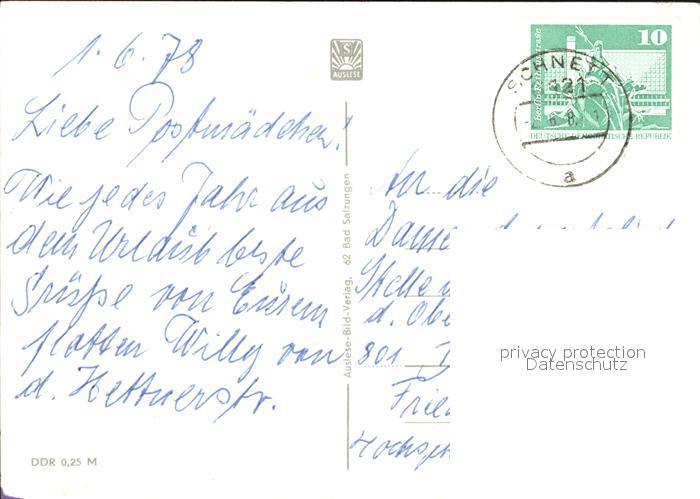 1. 6. 78
Liebe Postmädchen!
Wie jedes Jahr aus
dem Urlaub beste
Grüße von Eurem
flotten Willy von
d. Hettnerstr.
DDR 0,25 M
S
AUSLESE
Auslese-Bild-Verlag, 62 Bad Salzungen
10
DEUTSCHE DEMOKRATISCHE REPUBLIK
SCHNETT
a
An die
Dame
Stelle
d. Obe
801
Frie
Hochge
privacy protection
Datenschutz